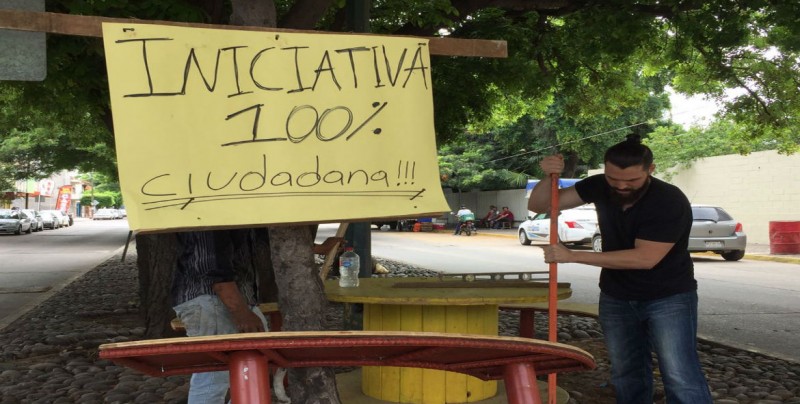 INICIATIVA
100%
ciudadana!!!